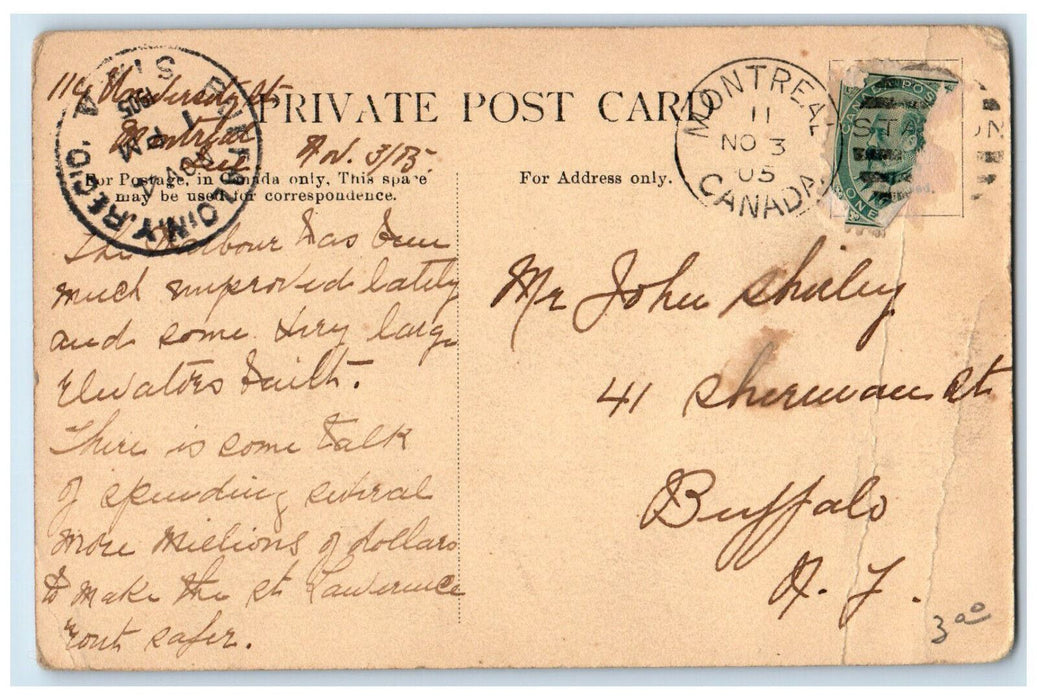 PRIVATE POST CARD
114 University St
Montreal
Nov. 3/05.
For Postage, in Canada only, This space
may be used for correspondence.
For Address only.
MONTREAL
11
NO 3
05
CANADA
CANADA POSTAGE
ONE
BUFFALO, N.Y. REC'D.
NOV 4
1 PM
1905
The Harbour has been
much improved lately
and some very large
Elevators built.
There is some talk
of spending several
more Millions of dollars
to make the St Lawerence
rout safer.
Mr John Shirley
41 Sherman St
Buffalo
N. Y.
3 00